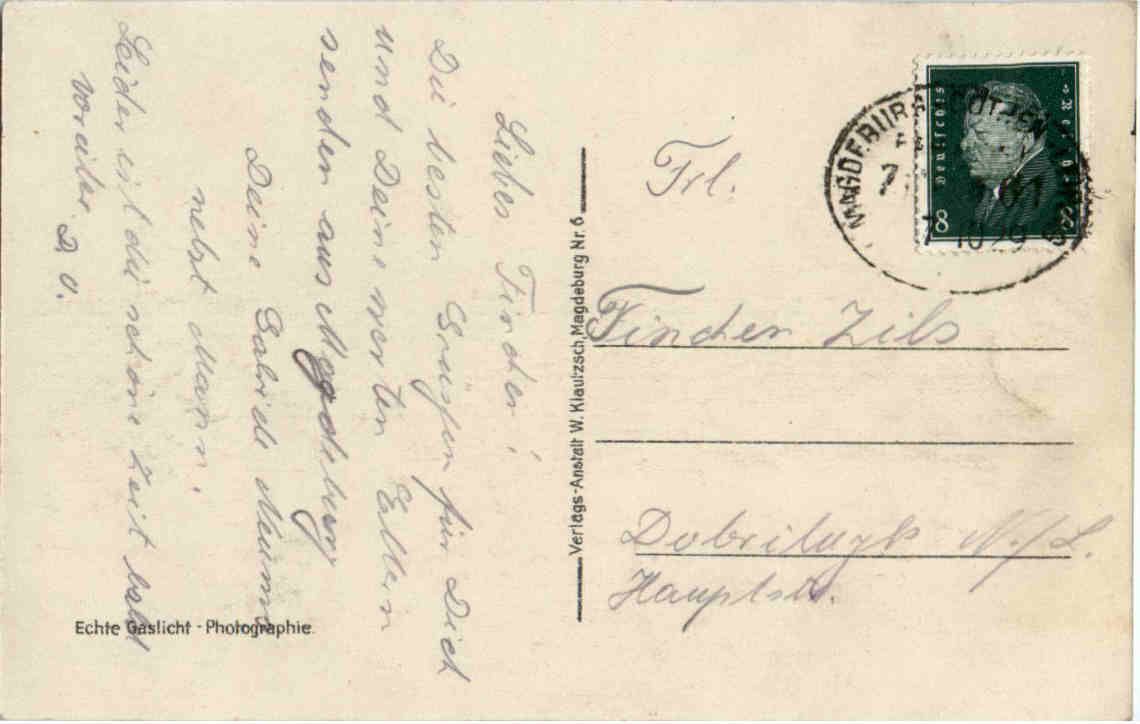 Liebes Finchen!
Die besten Grüße für Dich
und Deine werten Eltern
senden aus Magdeburg
Deine
nebst Mann.
Leider ist die schöne Zeit bald
vorüber. D. O.
Echte Gaslicht - Photographie
Verlags-Anstalt W. Klautzsch, Magdeburg Nr. 6
Deutsches Reich
8 8
MAGDEBURG CÖTHEN
7 10 29
Frl.
Finchen Zils
Dobrilugk N./L.
Hauptstr.